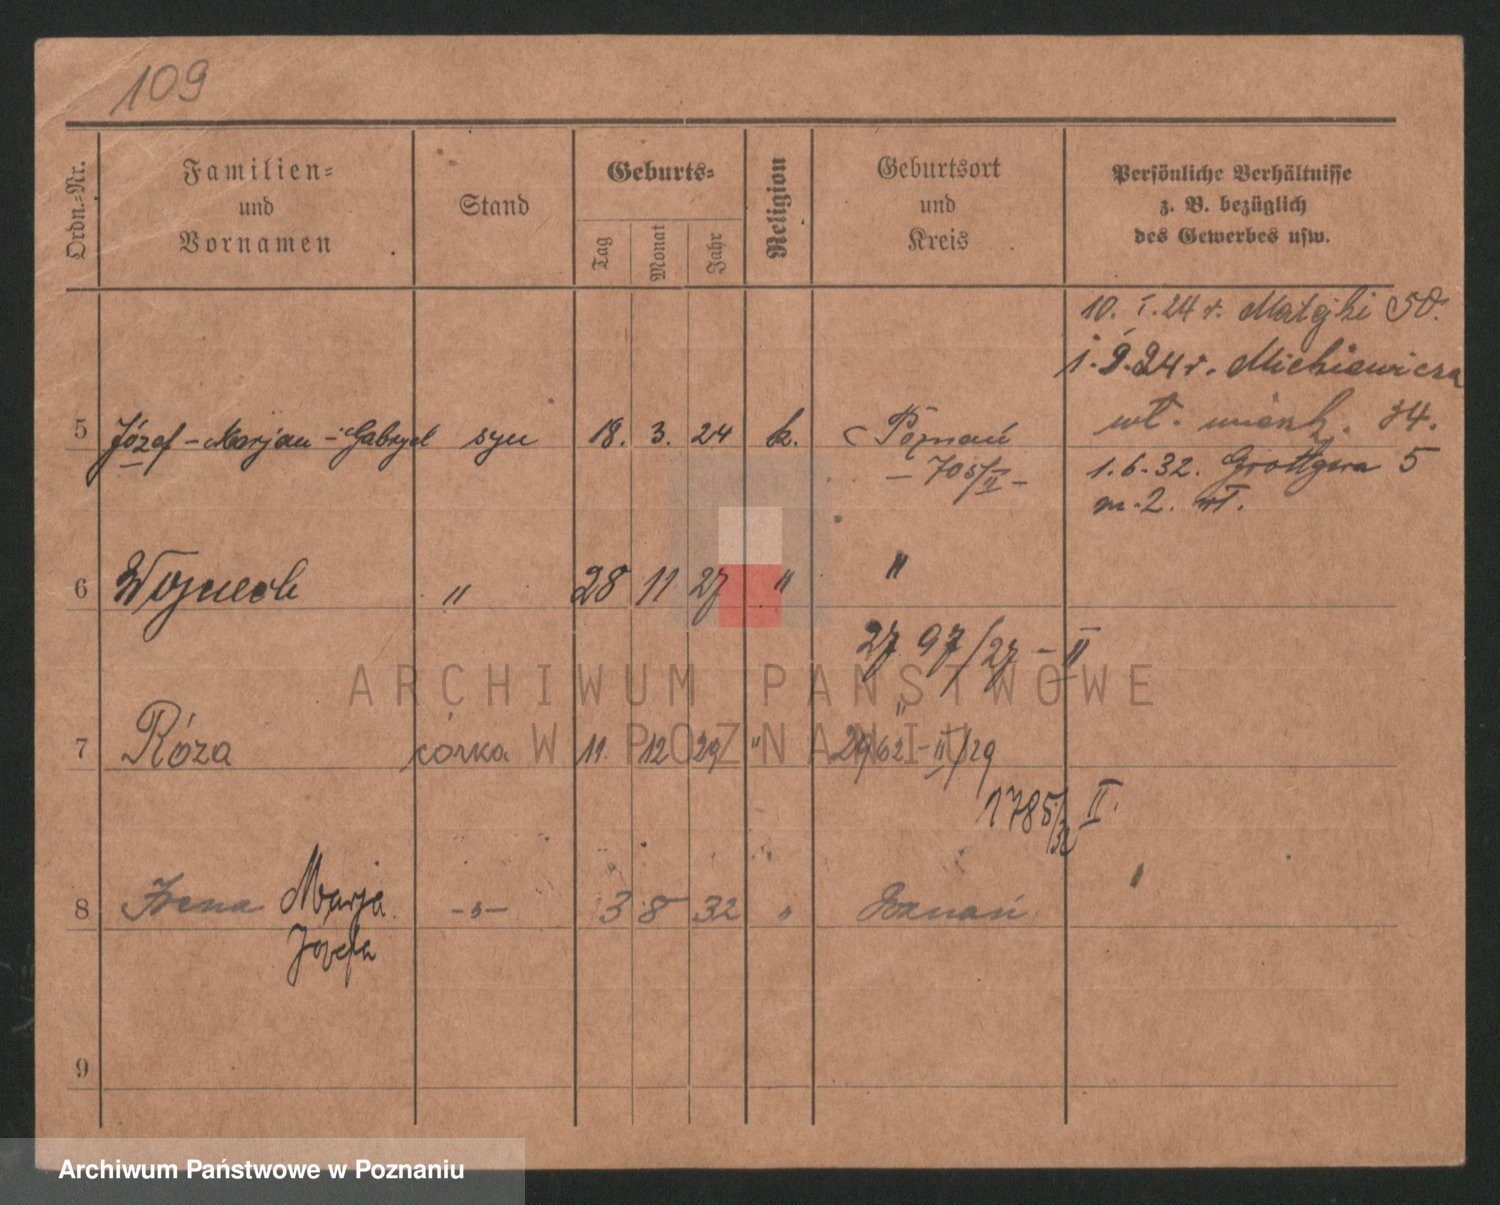 109
Ordn.-Nr.
Familien-
und
Vornamen
Stand
Geburts-
Tag
Monat
Jahr
Religion
Geburtsort
und
Kreis
Persönliche Verhältnisse
z. B. bezüglich
des Gewerbes usw.
10. I. 24 r. Matejki 50.
1. 9. 24 r. Mickiewicza
wł. mieszk. 34.
5 Józef - Marjan - Gabryel syn 18. 3. 24 k. Poznań
1. 6. 32. Grottgera 5
- 705/II -
m. 2. wł.
6 Wojciech " 28 11 27 " "
2797/27 - II
"
7 Róza córka 11. 12 29 " 2962 - II/29
1785/32 II.
8 Irena Marja -"- 3 8 32 " Poznań "
Józefa
9
ARCHIWUM PAŃSTWOWE
W POZNANIU
Archiwum Państwowe w Poznaniu